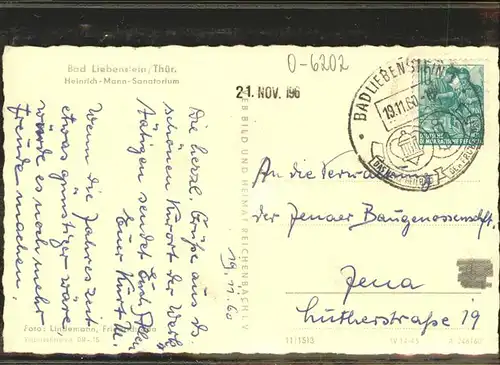 Bad Liebenstein/Thür.
Heinrich-Mann-Sanatorium
0-6202
21. NOV. 196
BAD LIEBENSTEIN
19.11.60
DEUTSCHE
DEMOKRATISCHE REPUBLIK
Die herzl. Grüße aus d.
schönen Kurort der Werk-
tätigen sendet Euch
Euer Kurt M.
Wenn die Jahreszeit
etwas günstiger wäre,
würde es noch mehr
Freude machen.
19.11.60
An die Verwaltung
der Jenaer Baugenossenschaft
Jena
Lutherstraße 19
BILD UND HEIMAT REICHENBACH I. V.
Foto: Lindemann,
11/1513